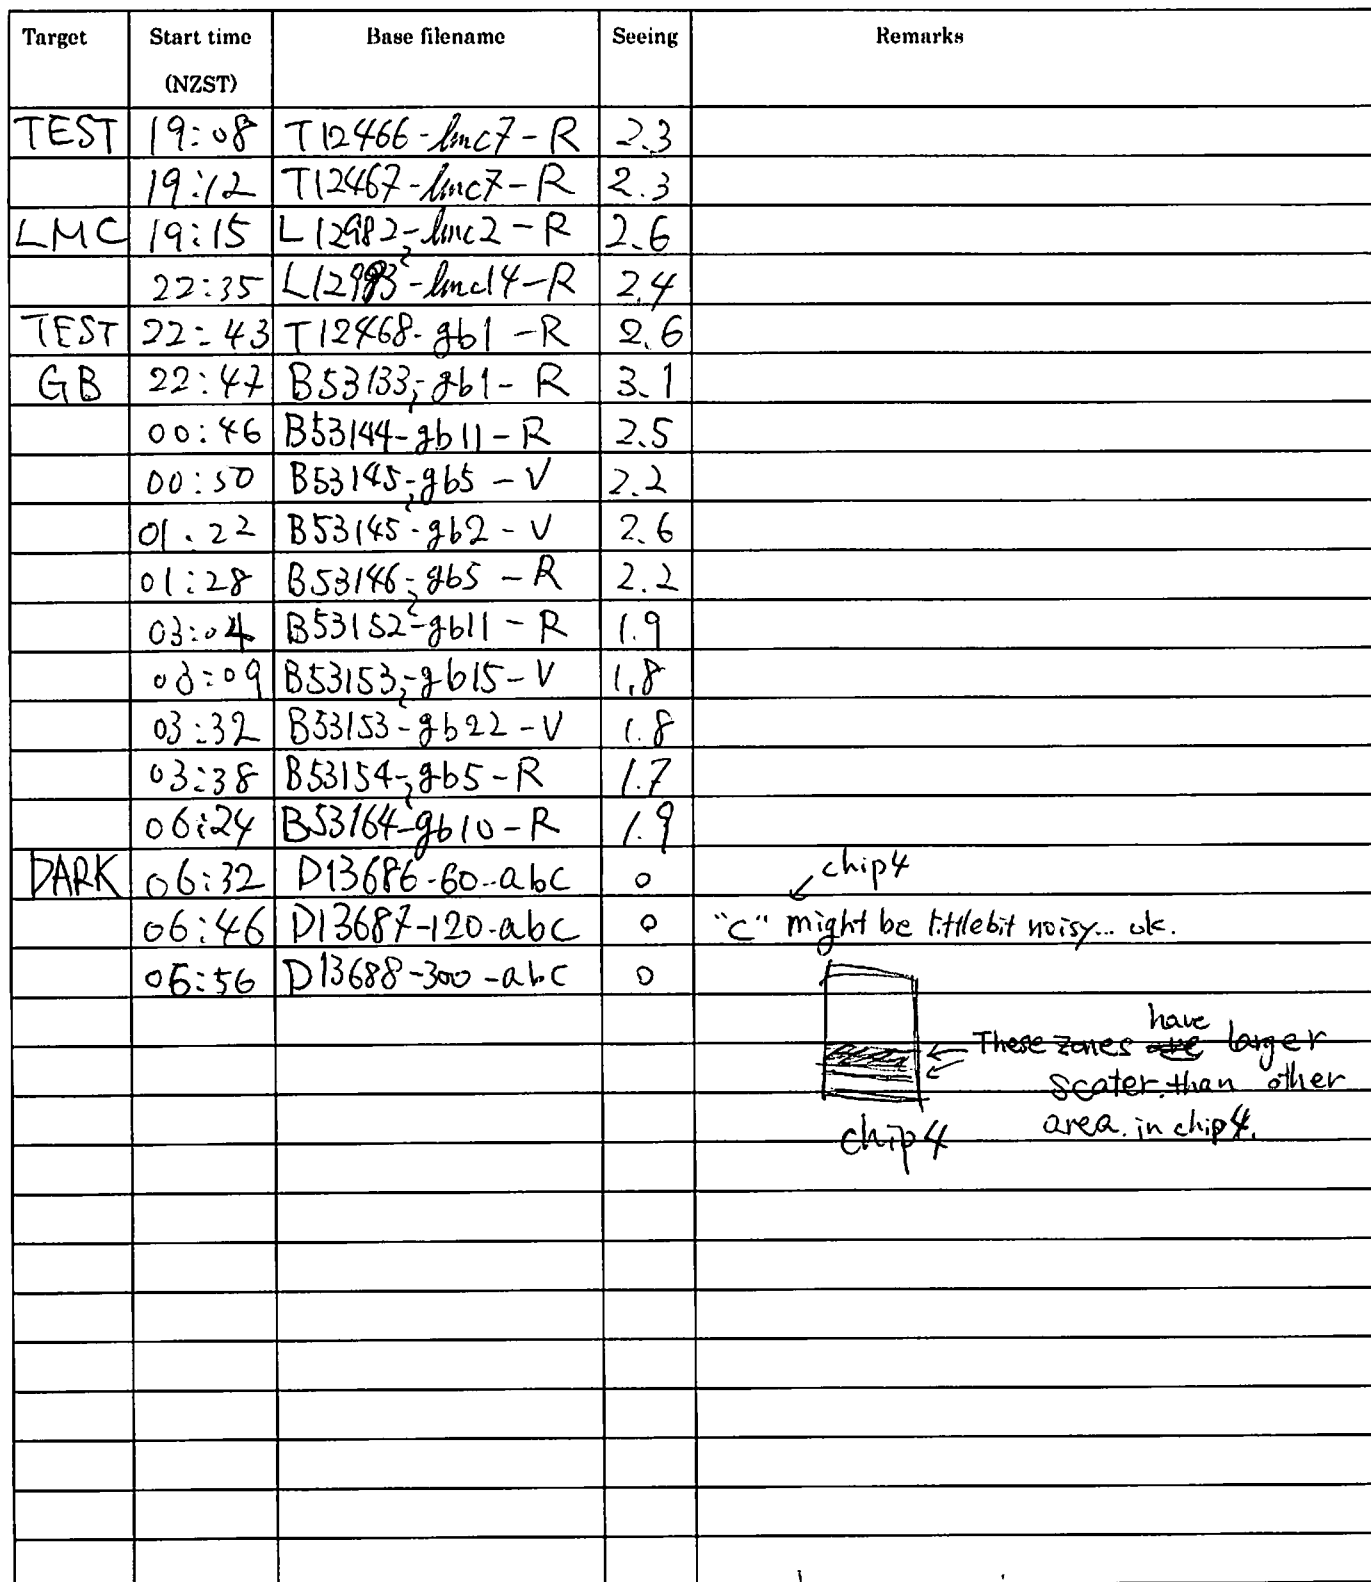 Target Start time Base filename Seeing Remarks
(NZST)
TEST 19:08 T12466-lmc7-R 2.3
19:12 T12467-lmc7-R 2.3
LMC 19:15 L12982-lmc2-R 2.6
22:35 -lmc14-R 2.4
TEST 22:43 T12468-gb1-R 2.6
GB 22:47 B53133-gb1-R 3.1
00:46 B53144-gb11-R 2.5
00:50 B53145-gb5-V 2.2
01:22 B53145-gb2-V 2.6
01:28 B53146-gb5-R 2.2
03:04 B53152-gb11-R 1.9
03:09 B53153-gb15-V 1.8
03:32 B53153-gb22-V 1.8
03:38 B53154-gb5-R 1.7
06:24 B53164-gb10-R 1.9
DARK 06:32 D13686-60-abc 0 chip4
06:46 D13687-120-abc 0 "c" might be littlebit noisy... ok.
06:56 D13688-300-abc 0
have
These zones are larger
scater than other
area. in chip4.
chip4